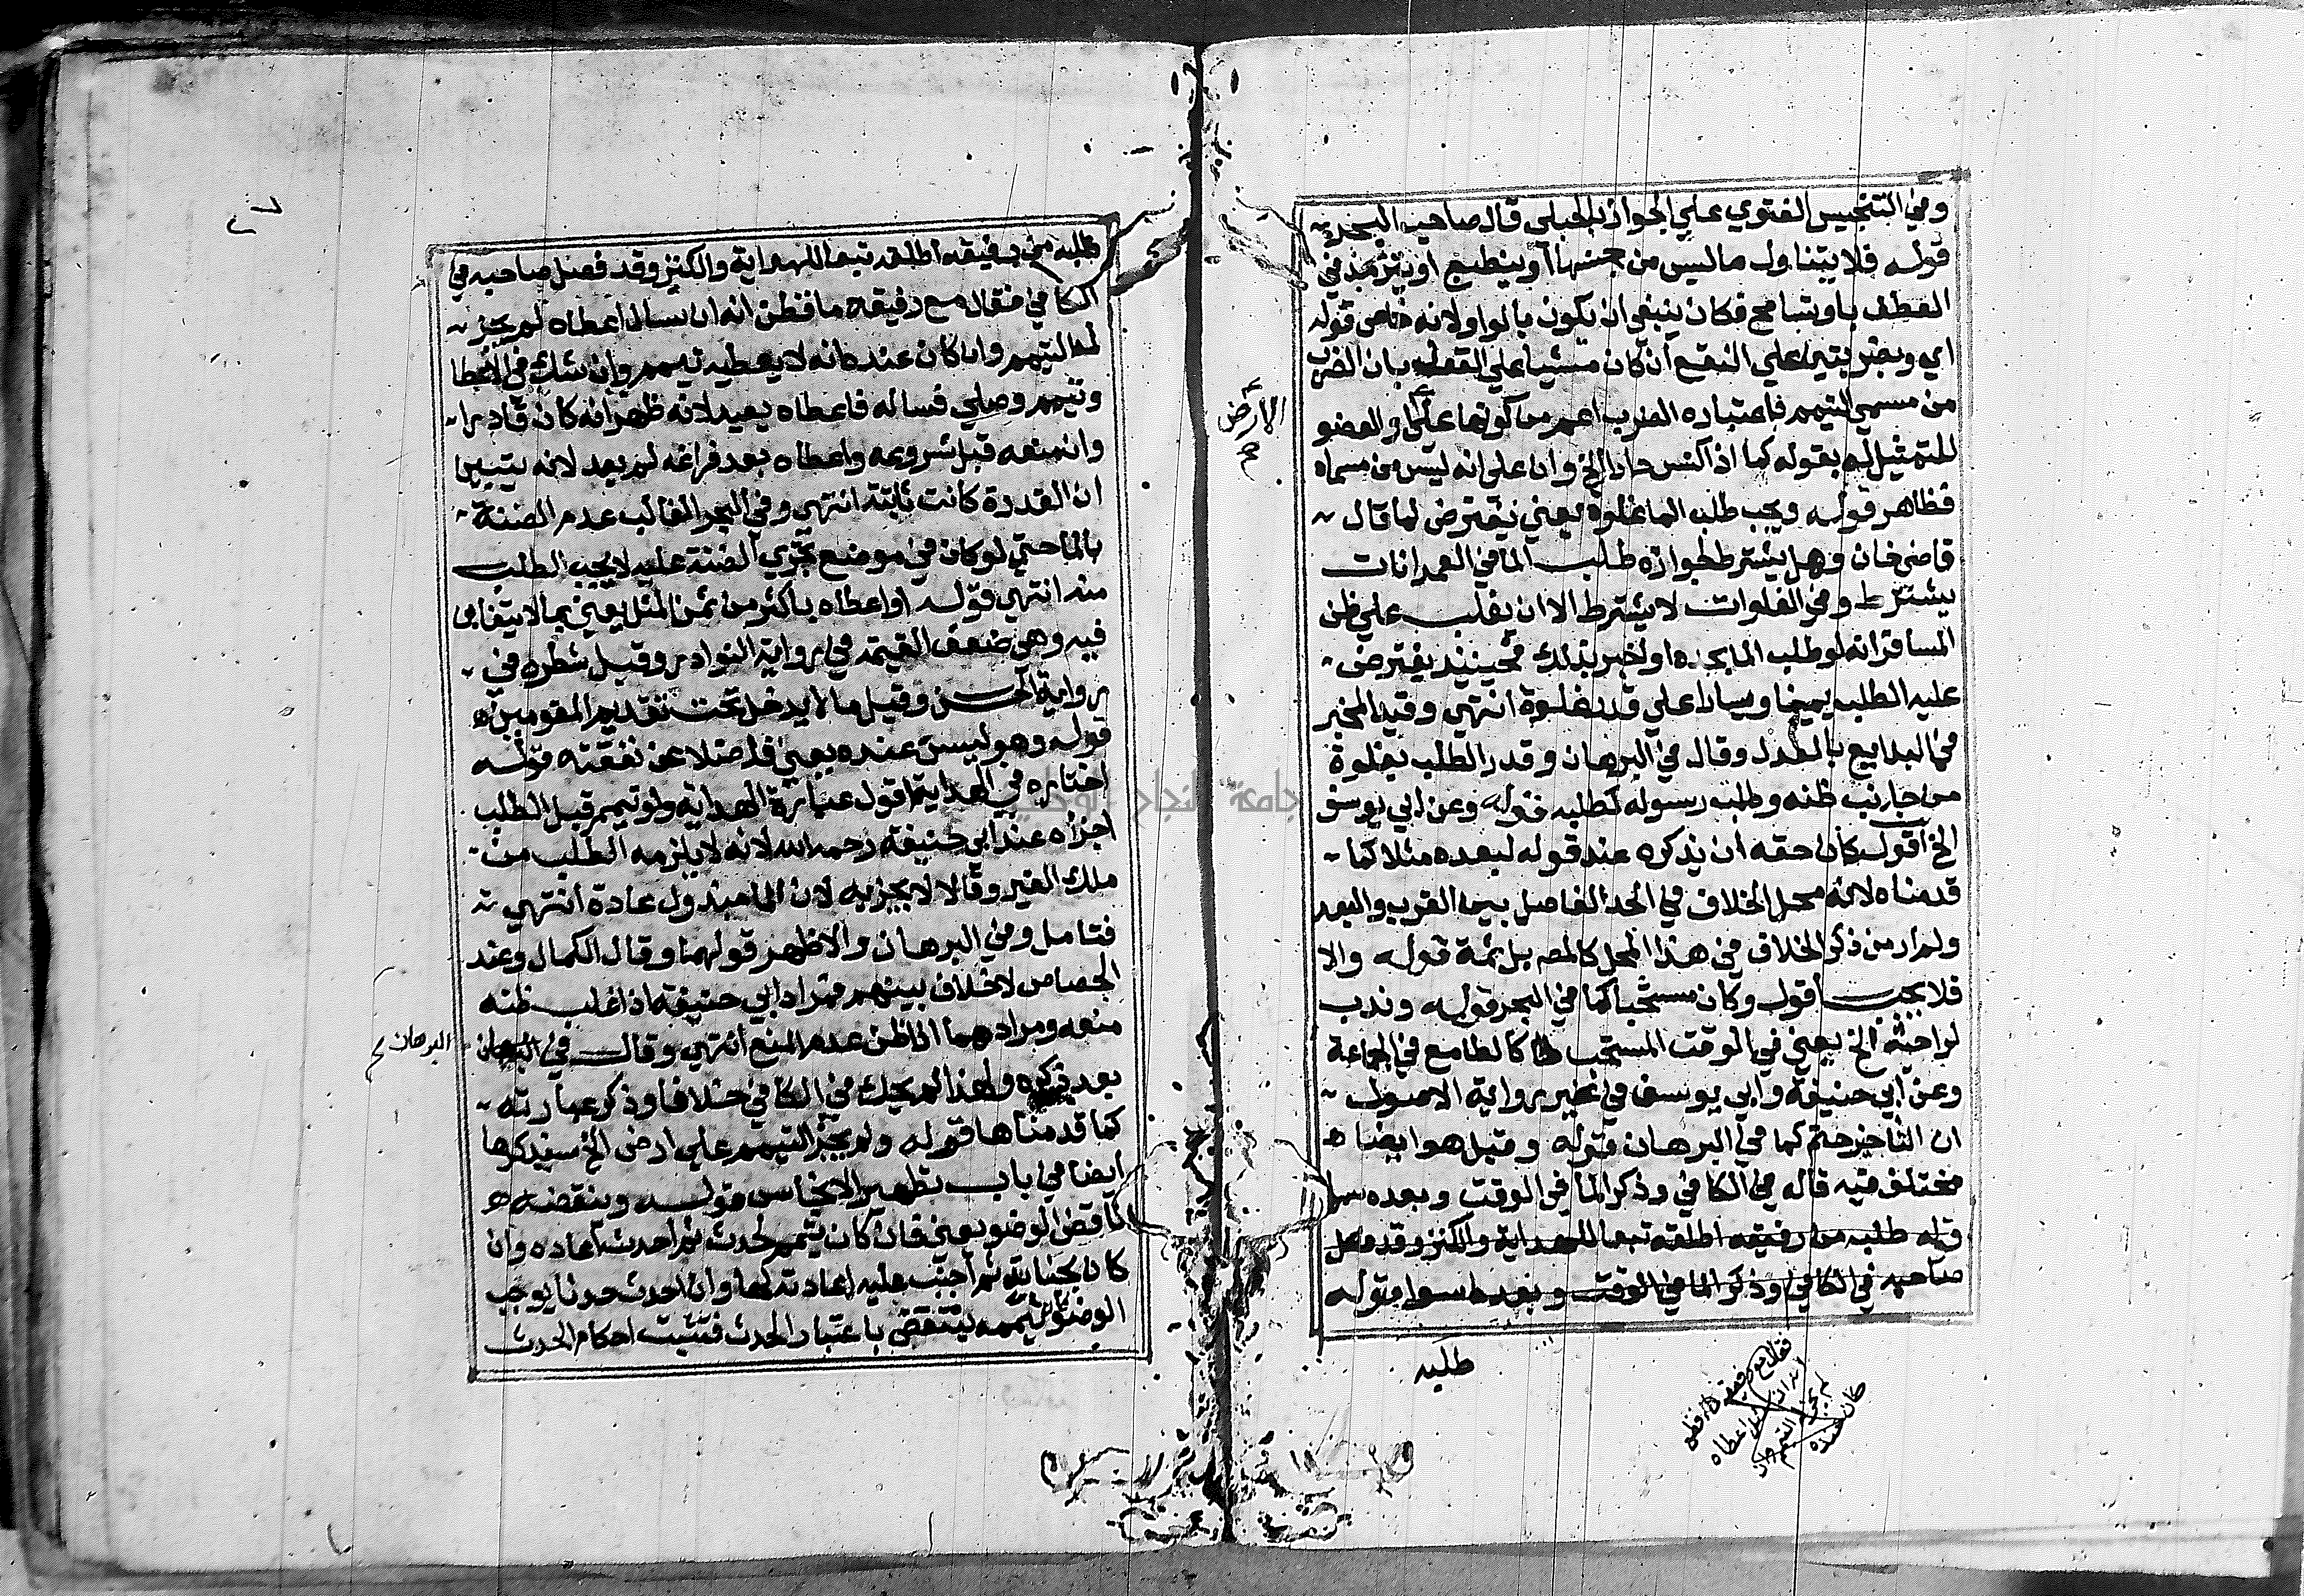 وفي التنجيس الفتوي علي الجواز بالجبلي قال صاحب البحر
قوله فلا يتناول ما ليس من جنسها او ينطبع او يترمد في
العطف باو تسامح فكان ينبغي ان يكون بالواو لانه خاص قوله
اي وبضربتين علي النقع ان كان مشيا علي القول بان الضرب
من مسمي التيمم فاعتباره الضرب اعم من كونها علي والعضو
للتمثيل له بقوله كما اذا كنس دارا الخ وان علي انه ليس من مسماه
فظاهر قوله ويجب طلب الما غلوة يعني يفترض لما قال
قاضي خان وهل يشترط لجوازه طلب الما في العمرانات
يشترط وفي الفلوات لا يشترط الا ان يغلب علي ظن
المسافر انه لو طلب الما يجده او اخبر بذلك فحينئذ يفترض
عليه الطلب يمينا ويسارا علي قدر غلوة انتهي وقيد المخبر
في البدايع بالعدل وقال في البرهان وقدر الطلب بغلوة
من جانب ظنه وطلب رسوله كطلبه قوله وعن ابي يوسف
الخ اقول كان حقه ان يذكره عند قوله لبعده مثلا كما
قدمناه لانه محل الخلاف في الحد الفاصل بين القرب والبعد
ولم ار من ذكر الخلاف في هذا المحل كالمص بل ثمة قوله والا
فلا يجب اقول وكان مستحبا كما في البحر قوله وندب
لراجيه الخ يعني في الوقت المستحب كالطامع في الجماعة
وعن ابي حنيفة وابي يوسف في غير رواية الاصول
ان التاخير حتم كما في البرهان قوله وقبل هو ايضا
مختلف فيه قاله في الكافي وذكر الما في الوقت وبعده سوا
قوله طلبه من رفيقه اطلقه تبعا للهداية والكنز وقد فصل
صاحبه في الكافي وذكر الما في الوقت وبعده سوا قوله
طلبه
فقال مع رفيقه ما فظن
انه ان سال اعطاه
لم يجز التيمم وان
كان عنده
الارض
صح
طلبه من رفيقه اطلقه تبعا للهداية والكنز وقد فصل صاحبه في
الكافي فقال مع رفيقه ما فظن انه ان سال اعطاه لم يجز
له التيمم وان كان عنده انه لا يعطيه تيمم وان شك في الاعطا
وتيمم وصلي فساله فاعطاه يعيد لانه ظهر انه كان قادرا
وان منعه قبل شروعه واعطاه بعد فراغه لم يعد لانه يتبين
ان القدرة كانت ثابتة انتهي وفي البحر الغالب عدم الضنة
بالما حتي لو كان في موضع تجري الضنة عليه لا يجب الطلب
منه انتهي قوله او اعطاه باكثر من ثمن المثل يعني بما لا يتغابن
فيه وهي ضعف القيمة في رواية النوادر وقيل شطره في
رواية الحسن وقيل ما لا يدخل تحت تقديم المقومين
قوله وهو ليس عنده يعني فاضلا عن نفقته قوله
اختاره في الهداية اقول عبارة الهداية ولو تيمم قبل الطلب
اجزاه عند ابي حنيفة رحمه الله لانه لا يلزمه الطلب من
ملك الغير وقالا لا يجزيه لان الما مبذول عادة انتهي
فتامل وفي البرهان والاظهر قولهما وقال الكمال وعند
الجصاص لا خلاف بينهم فمراد ابي حنيفة اذا غلب ظنه
منعه ومرادهما اذا ظن عدم المنع انتهي وقال في البرهان
البرهان صح
بعد ذكره ولهذا لم يحك في الكافي خلافا وذكر عبارته
كما قدمناها قوله ولم يجز التيمم علي ارض الخ سيذكرها
ايضا في باب تطهير الانجاس قوله وينقضه
ناقض الوضو يعني فان كان تيمم لحدث ثم احدث اعاده وان
كان لجنابة ثم اجنب عليه اعادته لها وان احدث حدثا يوجب
الوضو فتيممه ينتقض باعتبار الحدث فتثبت احكام الحدث